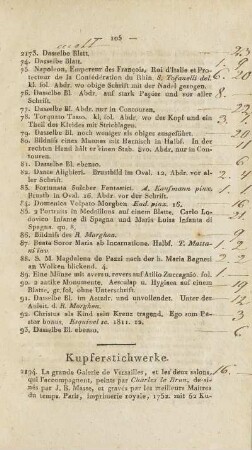 108
2173. Dasselbe Blatt.
74. Dasselbe Blatt.
75. Napoleon, Empereur des François, Roi d'Italie et Protecteur de la Confédération du Rhin. S. Tofanelli del.
kl. fol. Abdr. wo obige Schrift mit der Nadel gerogen.
76. Dasselbe Bl. Abdr. auf stark Papier und vor aller
Schrift.
77. Dasselbe Bl. Abdr. nur in Contouren.
78. Torquato Tasso, kl. fol. Abdr. wo der Kopf und ein
Theil des Kleides mit Stichlagen.
79. Dasselbe Bl. noch weniger als obiges ausgeführt.
80. Bildniss eines Mannes mit Harnisch in Halbf. In der
rechten Hand hält er einen Stab. Abdr. vor aller Schrift,
nur in Contouren.
81. Dasselbe Bl. ebenso.
82. Dante Alighieri. Brustbild im Oval. 12, Abdr. vor aller
Schrift.
83. Fortunata Sulcher Fantastici. A. Kaufmann pinx.
Brustb. in Oval. 16. Abdr. vor der Schrift.
84. Domenica Volpato Morghen. Ead. pinx. 16.
85. 2 Portraits in Medaillons auf einem Blatte, Carlo Lodovico Infante di Spagna und Maria Luisa Infanta di
Spagna. qu. 8.
86. Bildniss des R. Morghen.
87. Beata Soror Maria ab Incarnatione. Halbf.
88. S. M. Magdalena de Pazzi nach der h. Maria Bagnesi
an Wolken blickend. 4.
89. Eine Münze mit avers u. revers auf Atilio Zuccagnio. fol.
90. 2 antike Monumente. Aesculap u. Hygiea auf einem
Blatte, gr. fol. ohne Unterschrift.
91. Dasselbe Bl. im Aetzdr. und unvollendet. Unter den
d. R. Morghen.
92. Christus als Kind sein Kreuz tragend. Ego sum Pastor bonus. 1811. 12.
93. Dasselbe Bl. ebenso.
Kupferstichwerke.
2194. La grande Galerie de Versailles, et les deux salons,
qui l'accompagnent, peints par Charles le Brun, dessinés
par J. B. Masse, et gravés par les meilleurs Maitres
du temps. Paris, imprimerie royale, 1752. mit 62 Ku-